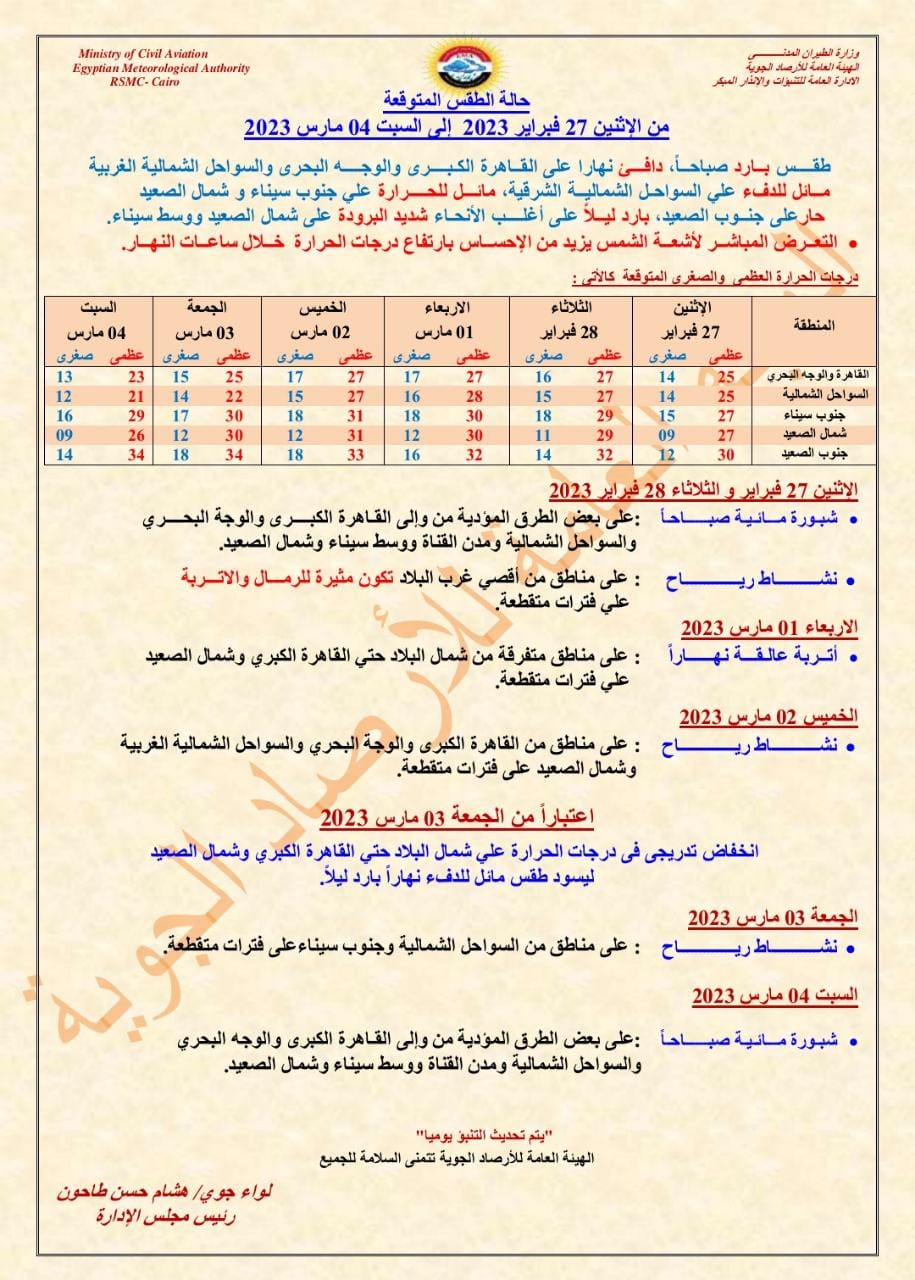 Ministry of Civil Aviation
Egyptian Meteorological Authority
RSMC- Cairo
وزارة الطيران المدنـــــى
الهيئة العامة للأرصاد الجوية
الادارة العامة للتنبؤات والإنذار المبكر
حالة الطقس المتوقعة
من الإثنين 27 فبراير 2023 إلى السبت 04 مارس 2023
طقـــس بــارد صباحـاً، دافــئ نهارا على القـاهرة الكبـرى والوجـــه البحرى والسواحل الشمالية الغربية
مــائل للدفء علي السواحل الشماليـة الشرقية، مـائـل للحـرارة علي جنوب سيناء و شمال الصعيد
حارعلى جنـوب الصعيد، بارد ليـلاً علـى أغلــب الأنحـاء شديد البرودة على شمال الصعيد ووسط سيناء.
• التعـرض المباشـر لأشعـة الشمس يزيد من الإحساس بارتفاع درجات الحرارة خـلال ساعـات النهـار.
درجات الحرارة العظمي والصغرى المتوقعة كالأتى :
المنطقة الإثنين الثلاثاء الاربعاء الخميس الجمعة السبت
27 فبراير 28 فبراير 01 مارس 02 مارس 03 مارس 04 مارس
عظمى صغرى عظمى صغرى عظمى صغرى عظمى صغرى عظمى صغرى عظمى صغرى
القاهرة والوجه البحري 25 14 27 16 27 17 27 17 25 15 23 13
السواحل الشمالية 25 14 27 15 28 16 27 15 22 14 21 12
جنوب سيناء 27 15 29 18 30 18 31 18 30 17 29 16
شمال الصعيد 27 09 29 11 30 12 31 12 30 12 26 09
جنوب الصعيد 30 12 32 14 32 16 33 18 34 18 34 14
الإثنين 27 فبراير و الثلاثاء 28 فبراير 2023
• شبورة مـائـية صبـــاحـاً :على بعض الطرق المؤدية من وإلى القـاهرة الكبــرى والوجة البحـــري
والسواحل الشمالية ومدن القناة ووسط سيناء وشمال الصعيد.
• نشــــاط ريــــــاح : على مناطق من أقصي غرب البلاد تكون مثيرة للرمـــال والاتربة
علي فترات متقطعة.
الاربعاء 01 مارس 2023
• أتــربة عالـقــة نهــــاراً : على مناطق متفرقة من شمال البلاد حتي القاهرة الكبري وشمال الصعيد
علي فترات متقطعة.
الخميس 02 مارس 2023
• نشــــاط ريــــــاح : على مناطق من القاهرة الكبرى والوجة البحري والسواحل الشمالية الغربية
وشمال الصعيد على فترات متقطعة.
اعتباراً من الجمعة 03 مارس 2023
انخفاض تدريجى فى درجات الحرارة علي شمال البلاد حتي القاهرة الكبري وشمال الصعيد
ليسود طقس مائل للدفء نهاراً بارد ليلاً.
الجمعة 03 مارس 2023
• نشــــاط ريــــــاح : على مناطق من السواحل الشمالية وجنوب سيناءعلى فترات متقطعة.
السبت 04 مارس 2023
• شبورة مـائـية صبـــاحـاً :على بعض الطرق المؤدية من وإلى القاهرة الكبرى والوجه البحري
والسواحل الشمالية ومدن القناة ووسط سيناء وشمال الصعيد.
"يتم تحديث التنبؤ يوميا"
الهيئة العامة للأرصاد الجوية تتمنى السلامة للجميع
لواء جوي/ هشام حسن طاحون
رئيس مجلس الإدارة